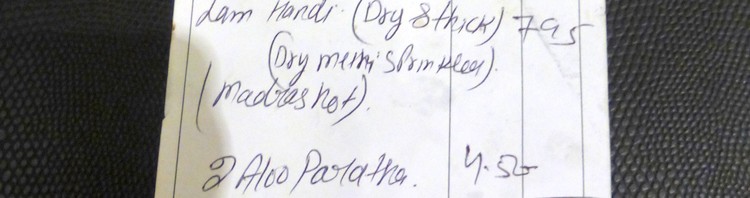 Lam Handi. (Dry & thick) 795
(Dry methi sprinkled).
(madras hot).
2 Aloo Paratha. 4.50